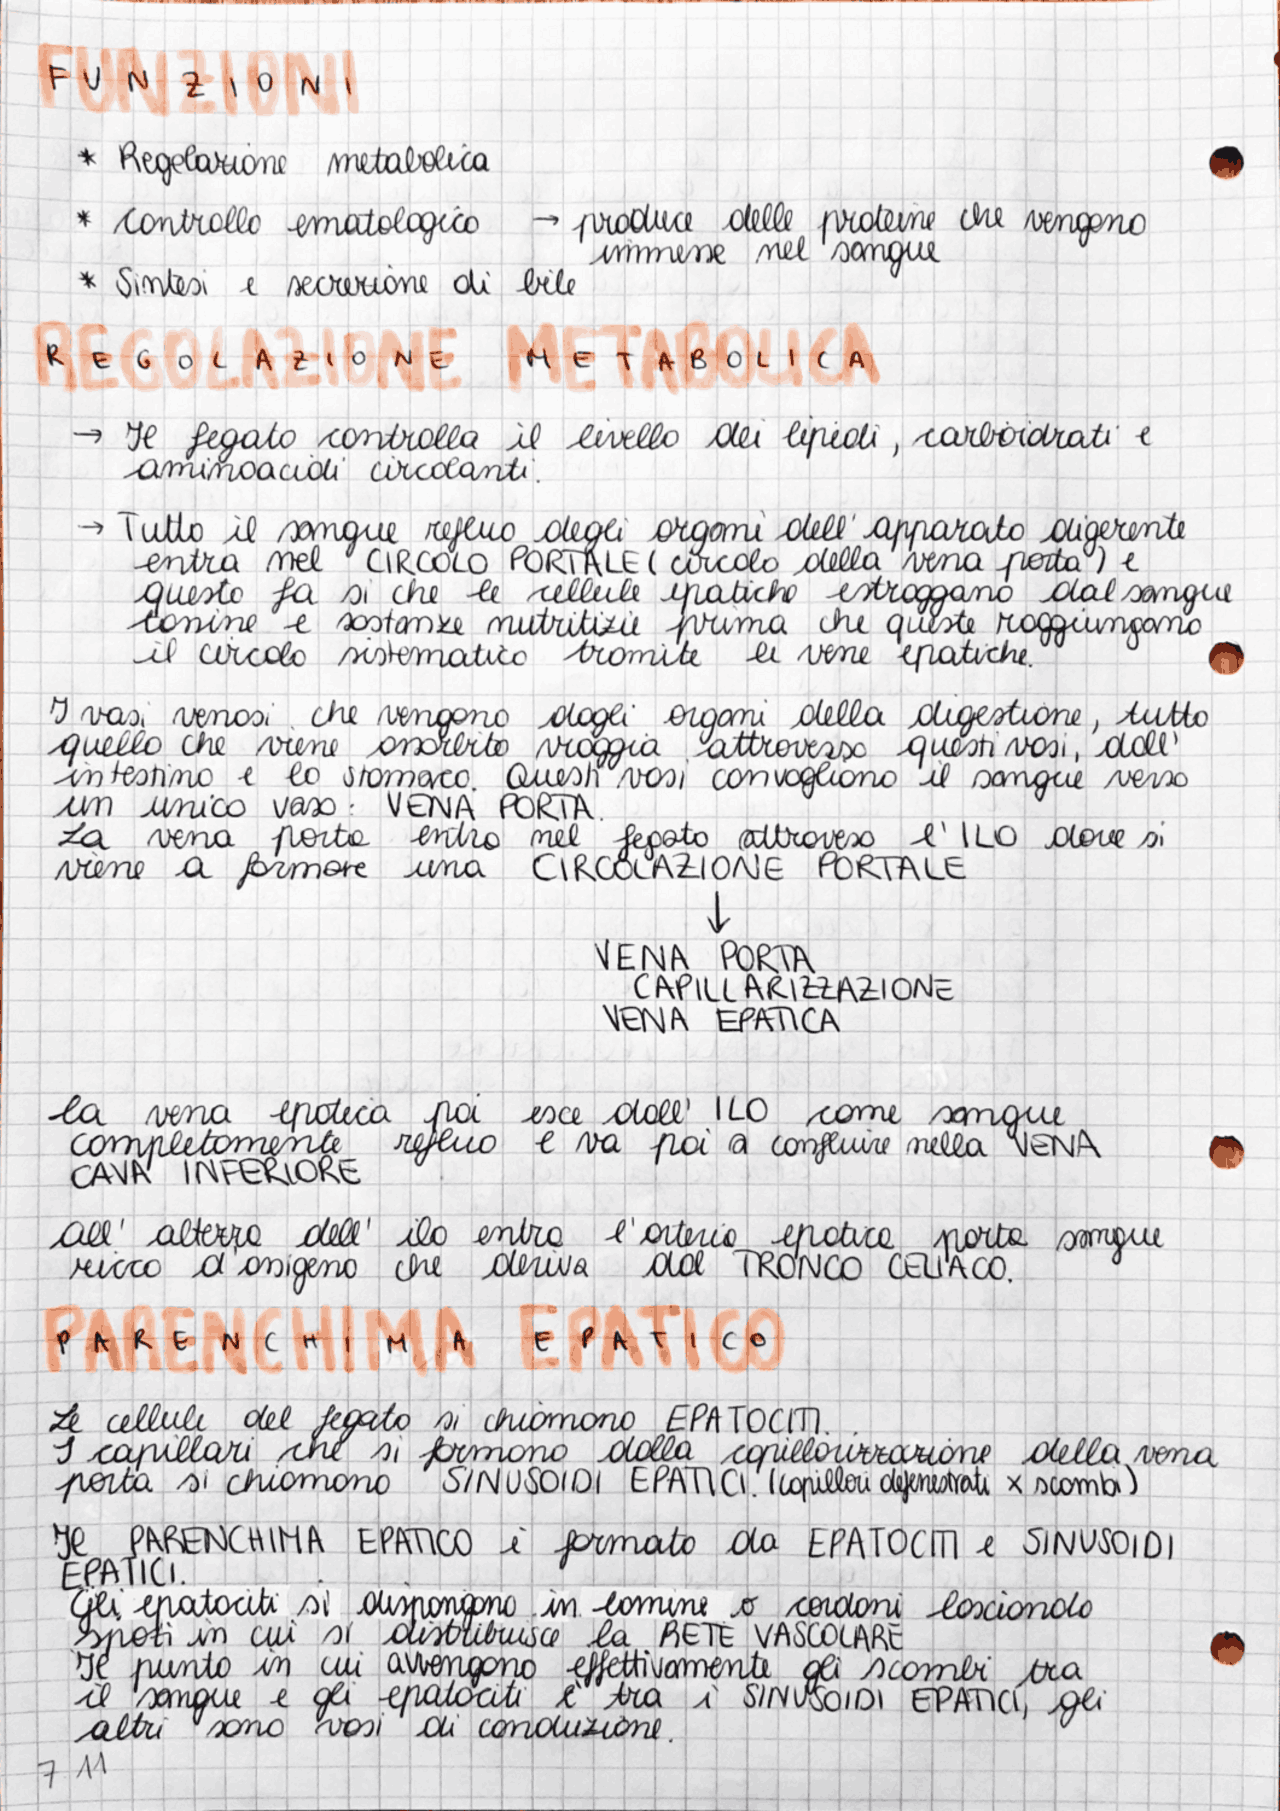 FUNZIONI
* Regolazione metabolica
* Controllo ematologico → produce delle proteine che vengono
immesse nel sangue
* Sintesi e secrezione di bile
REGOLAZIONE METABOLICA
→ Il fegato controlla il livello dei lipidi, carboidrati e
aminoacidi circolanti.
→ Tutto il sangue refluo degli organi dell'apparato digerente
entra nel CIRCOLO PORTALE (circolo della vena porta) e
questo fa si che le cellule epatiche estraggano dal sangue
tossine e sostanze nutritizie prima che queste raggiungano
il circolo sistematico tramite le vene epatiche.
I vasi venosi che vengono dagli organi della digestione, tutto
quello che viene assorbito viaggia attraverso questi vasi, dall'
intestino e lo stomaco. Questi vasi convogliono il sangue verso
un unico vaso: VENA PORTA.
La vena porta entra nel fegato attraveso l'ILO dove si
viene a formare una CIRCOLAZIONE PORTALE
↓
VENA PORTA
CAPILLARIZZAZIONE
VENA EPATICA
la vena epatica poi esce dall' ILO come sangue
completamente refluo e va poi a confluire nella VENA
CAVA INFERIORE
All' altezza dell' ilo entra l'arteria epatica porta sangue
ricco d'ossigeno che deriva dal TRONCO CELIACO.
PARENCHIMA EPATICO
Le cellule del fegato si chiamano EPATOCITI.
I capillari che si formano dalla capillarizzazione della vena
porta si chiamano SINUSOIDI EPATICI. (capillari defenestrati x scambi)
Il PARENCHIMA EPATICO è formato da EPATOCITI e SINUSOIDI
EPATICI.
Gli epatociti si dispongono in lamine o cordoni lasciando
spati in cui si distribuisce la RETE VASCOLARE
Il punto in cui avvengono effettivamente gli scambi tra
il sangue e gli epatociti è tra i SINUSOIDI EPATICI, gli
altri sono vasi di conduzione.
7 11